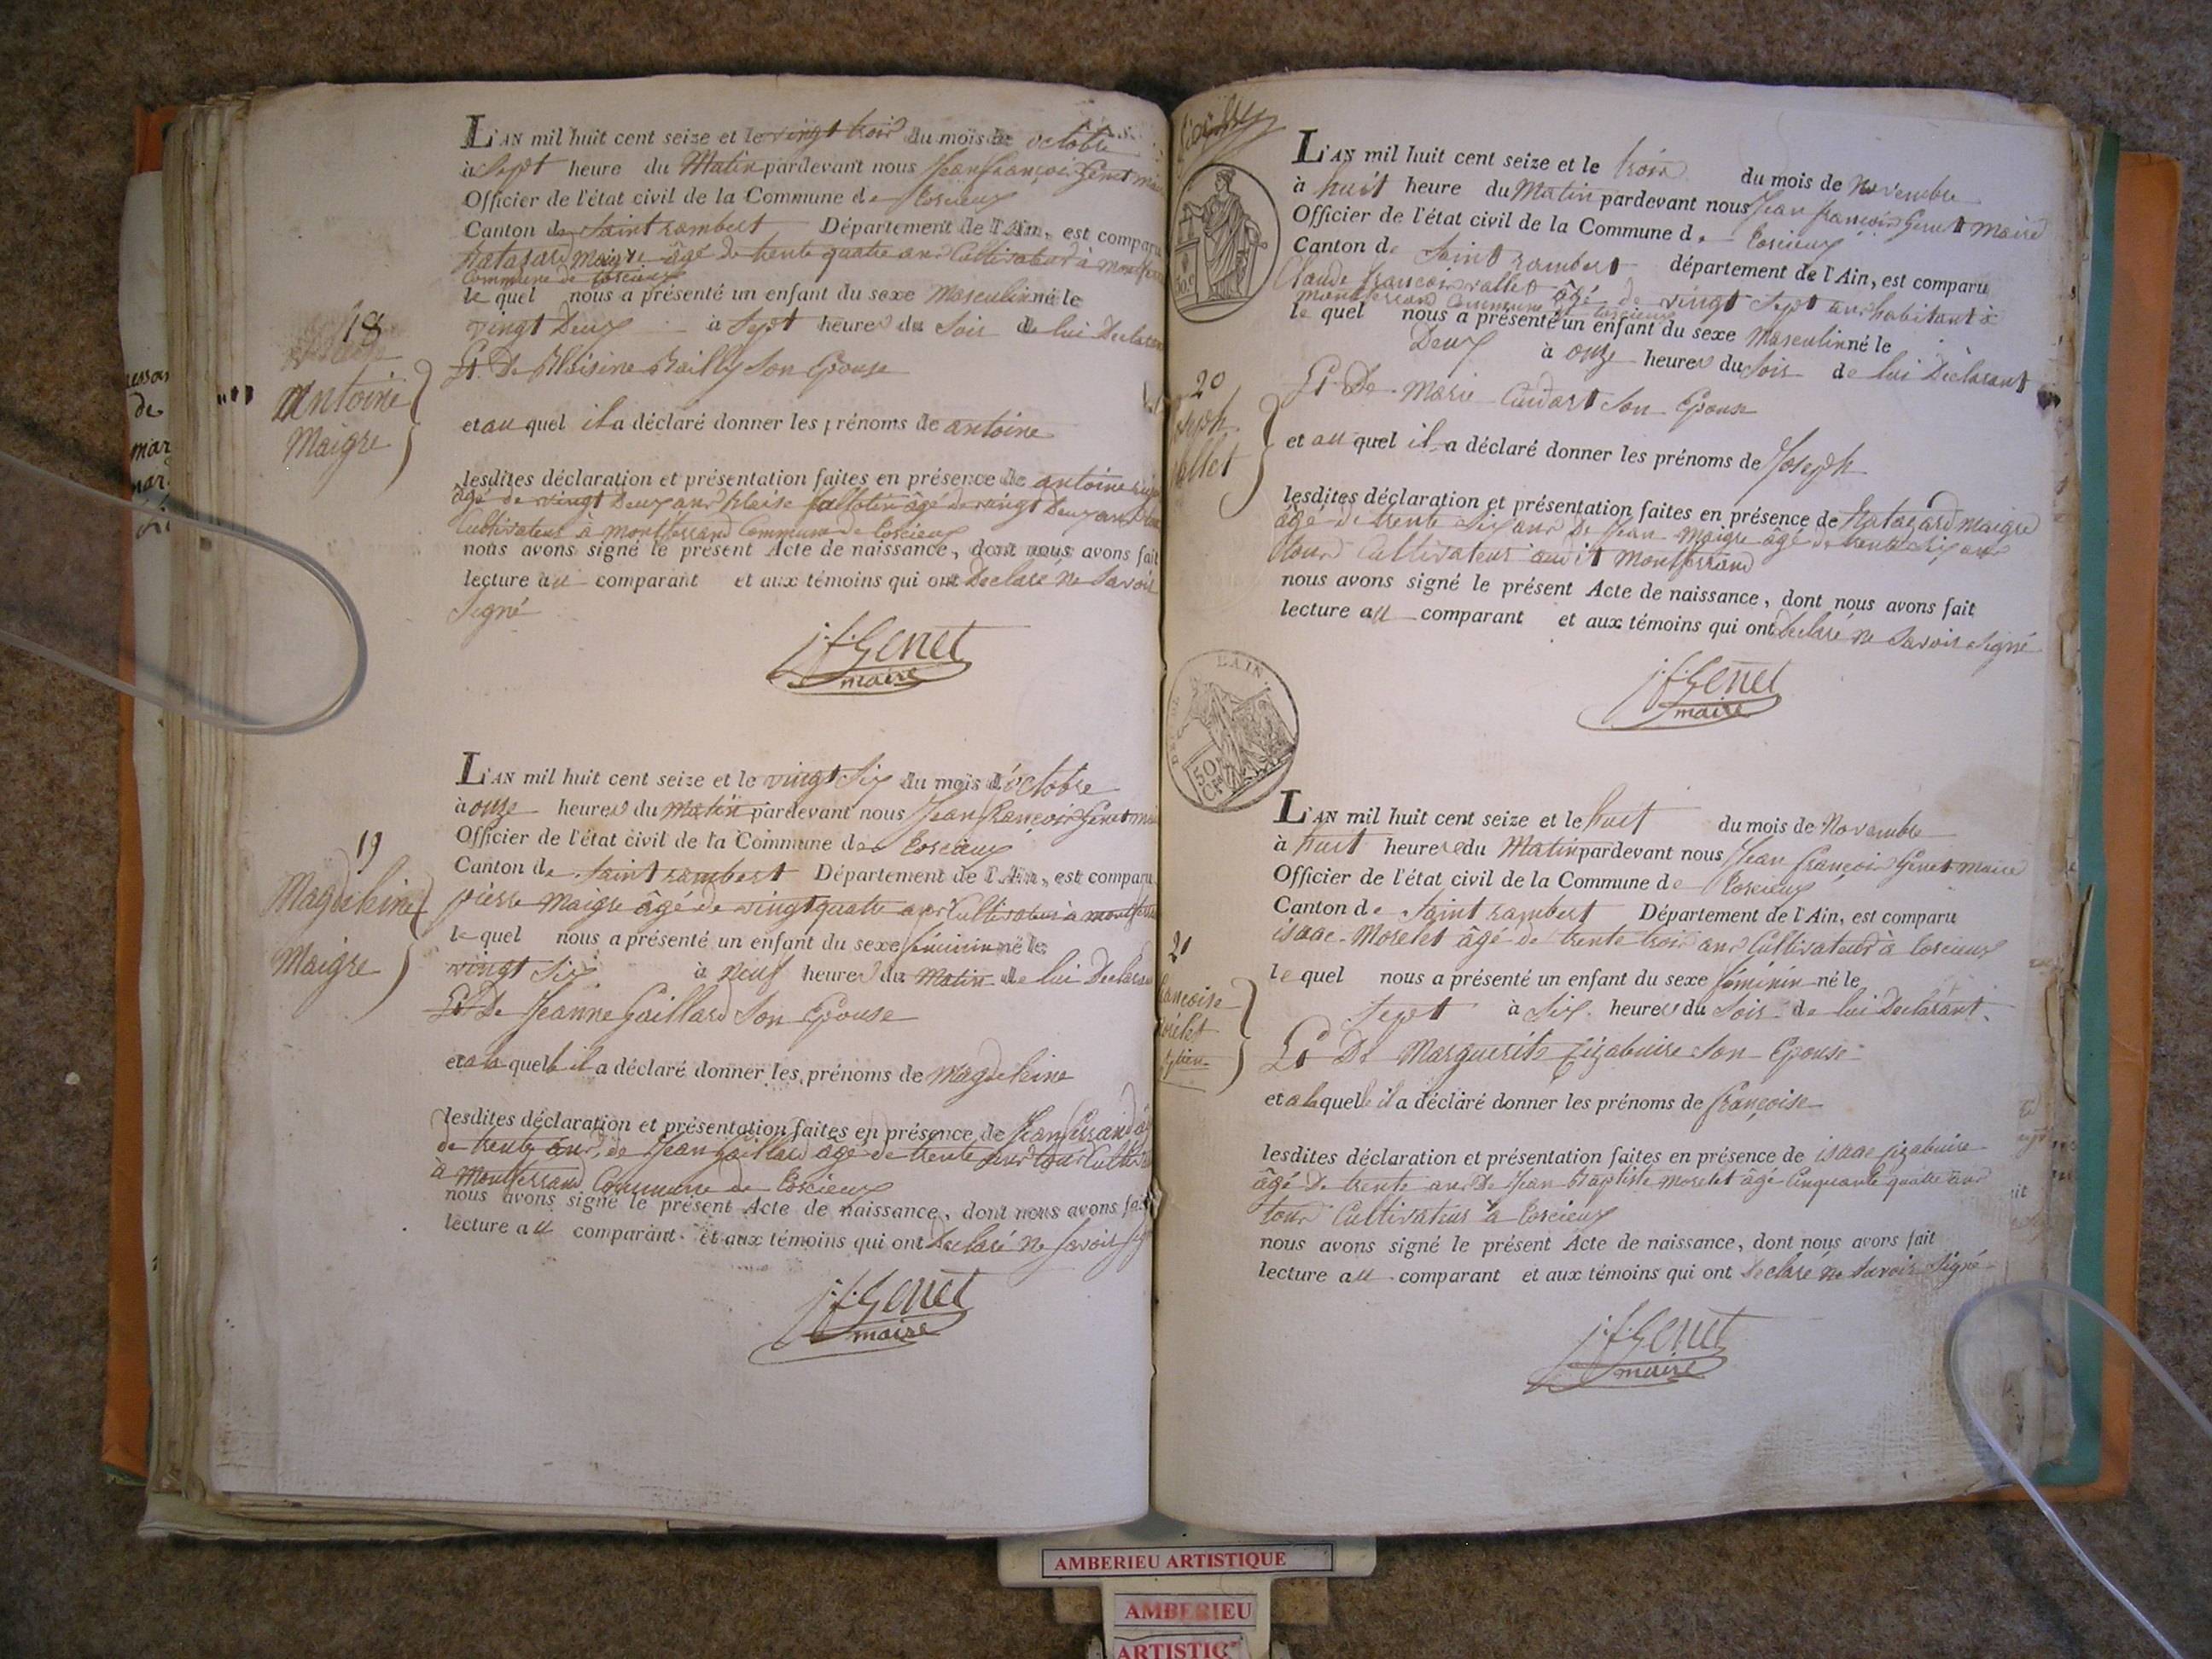 18
Antoine
Maigre
L'AN mil huit cent seize et le vingt trois du mois de octobre
à Sept heure du Matin pardevant nous Jean françois Genet
Officier de l'état civil de la Commune de Torcieux
Canton de Saint rambert Département de l'Ain, est comparu
Batazard Maigre âgé de trente quatre ans Cultivateur à
Commune de Torcieux
le quel nous a présenté un enfant du sexe Masculin né le
vingt Deux à Sept heures du Soir de lui Declarant
Et De Blaisine Bailly Son Epouse
et au quel il a déclaré donner les prénoms de antoine
lesdites déclaration et présentation faites en présence de antoine
âgé de vingt Deux ans blaise âgé de vingt Deux ans
Cultivateurs à montferrand Commune de Torcieux
nous avons signé le présent Acte de naissance, dont nous avons fait
lecture au comparant et aux témoins qui ont Declaré ne Savoir
Signé
j. f. Genet
maire
19
Magdeleine
Maigre
L'AN mil huit cent seize et le vingt Six du mois d'octobre
à onze heures du matin pardevant nous Jean françois Genet
Officier de l'état civil de la Commune de Torcieux
Canton de Saint rambert Département de l'Ain, est comparu
pierre Maigre âgé de vingt quatre ans Cultivateur à
le quel nous a présenté un enfant du sexe féminin né le
vingt Six à Neuf heures du Matin de lui Declarant
Et De Jeanne Gaillard Son Epouse
et a la quelle il a déclaré donner les prénoms de Magdeleine
lesdites déclaration et présentation faites en présence de Jean
de trente ans, de Jean Gaillard âgé de trente ans tous
à Montferrand Commune de Torcieux
nous avons signé le présent Acte de naissance, dont nous avons fait
lecture au comparant et aux témoins qui ont Declaré ne Savoir
j. f. Genet
maire
L'AN mil huit cent seize et le trois du mois de Novembre
à huit heure du Matin pardevant nous Jean françois Genet Maire
Officier de l'état civil de la Commune de Torcieux
Canton de Saint rambert département de l'Ain, est comparu
Claude françois vallet âgé de vingt Sept ans habitant à
montferrand Commune de Torcieux
le quel nous a présenté un enfant du sexe Masculin né le
Deux à onze heures du Soir de lui Déclarant
20
Et De Marie Son Epouse
et au quel il a déclaré donner les prénoms de Joseph
lesdites déclaration et présentation faites en présence de Batazard Maigre
âgé de trente Six ans De Jean Maigre âgé de trente Six ans
tous Cultivateurs audit Montferrand
nous avons signé le présent Acte de naissance, dont nous avons fait
lecture au comparant et aux témoins qui ont Declaré ne Savoir Signé
j. f. Genet
maire
L'AIN
50
L'AN mil huit cent seize et le huit du mois de Novembre
à huit heures du Matin pardevant nous Jean françois Genet maire
Officier de l'état civil de la Commune de Torcieux
Canton de Saint rambert Département de l'Ain, est comparu
isaac Morelet âgé de trente trois ans Cultivateur à Torcieux
21
le quel nous a présenté un enfant du sexe féminin né le
Sept à Six heures du Soir de lui Declarant
Et De Marguerite Son Epouse
et a la quelle il a déclaré donner les prénoms de françoise
lesdites déclaration et présentation faites en présence de isaac
âgé De trente ans De Jean Baptiste Morelet âgé Cinquante quatre ans
tous Cultivateurs à Torcieux
nous avons signé le présent Acte de naissance, dont nous avons fait
lecture au comparant et aux témoins qui ont Declaré ne Savoir Signé
j. f. Genet
maire
AMBERIEU ARTISTIQUE
AMBERIEU
ARTISTIQ